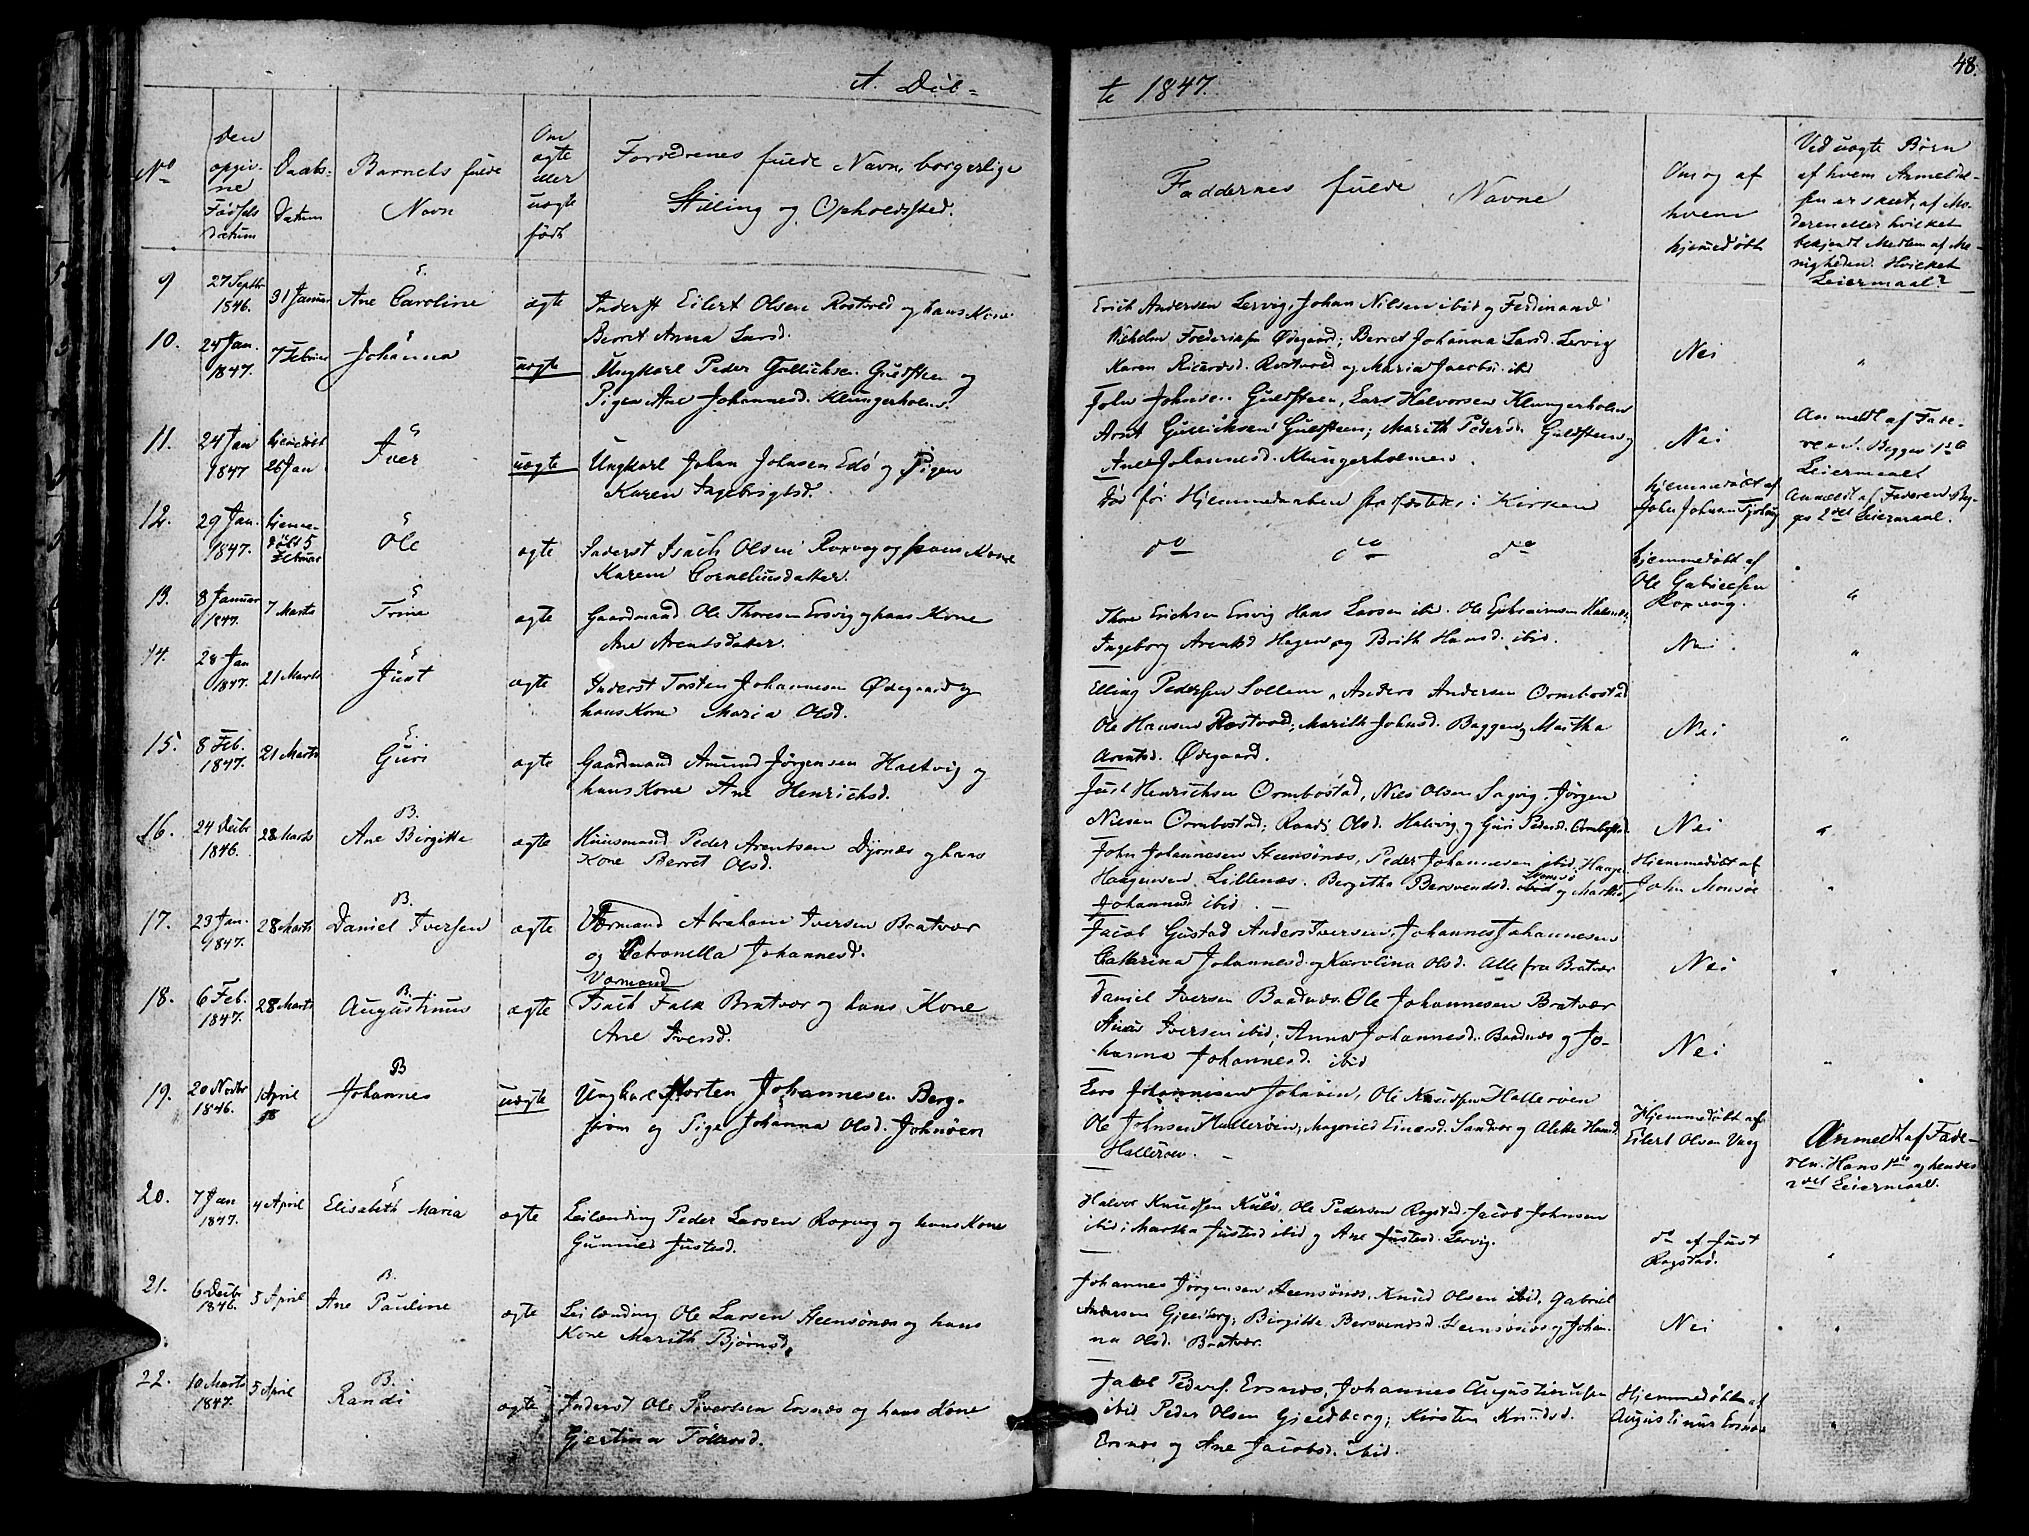 A. Døb=
te 1847.
48.
No
Den opgivne Fødsels datum
Daabs-Datum
Barnets fulde Navn
Om ægte eller uægte født
Forældrenes fulde Navn, borgerlige Stilling og Opholdssted.
Faddernes fulde Navne
Om og af hvem hjemmedøbt
Ved uægte Børn
af hvem Anmeldel-
sen er skeet, af Mo-
deren eller hvilket
bekjendt Medlem af Me-
nigheden. Hvilket
Leiermaal?
9
27 Septbr 1846.
31 Januar
E.
Ane Caroline
ægte
Inderst Eilert Olsen Rostved og hans Kone
Berret Anna Larsd.
Erich Andersen Lervig, Johan Nilsen ibid og Ferdinand
Vilhelm Ødegaard; Berret Johanna Larsd. Lervig
Karen Rostvad og Maria Jacobs. ibid
Nei
"
10.
24 Jan. 1847.
7 Februar
E
Johanna
uægte
Ungkarl Peder Gullichsen Guldsteen og
Pigen Ane Johannesd. Klungerholm.
John Johnsen Guldsteen, Lars Halvorsen Klungerholm
Arnt Gullichsen Guldsteen; Marith Pedersd. Guldsteen og
Ane Johannesd. Klungerholmen.
Nei
Anmeldt af Fade-
ren. Begges 1ste
Leiermaal
11.
24 Jan 1847
hjemedøbt 25 Jan
E
Iver
uægte
Ungkarl Johan Johnsen Edø og Pigen
Karen Ingebrigtsd.
Død før Hjemmedaaben stadfæstes i Kirken
hjemmedøbt af
John Johnsen
Anmeldt af Faderen. Beg-
ges 2det Leiermaal.
12.
29 Jan. 1847.
hjemme-
døbt 5
Februar
E
Ole
ægte
Inderst Isach Olsen Roxvog og hans Kone
Karen Corneliusdatter.
do do do
hjemmedøbt af
Ole Gabrielsen
Roxvog.
13.
8 Januar 1847.
7 Marts
E
Trine
ægte
Gaardmand Ole Thoresen Ersvig og hans Kone
Ane Arentsdatter.
Thore Erichsen Ersvig Hans Larsen ibid. Ole Ephraimsen
Ingeborg Arentsd Hagen og Brith Hansd. ibid.
Nei
"
14.
28 Jan 1847.
21 Marts
E
Just
ægte
Inderst Torsten Johannesen Ødegaard og
hans Kone Maria Olsd.
Elling Pedersen Sollem, Anders Andersen Ormbostad
Ole Hansen Rostvad; Marith Johnsd. Baggen og Martha
Arentsd. Ødegaard.
Nei
"
15.
8 Feb. 1847.
21 Marts
E
Guri
ægte
Gaardmand Amund Jørgensen Haltvig og
hans Kone Ane Henrichsd.
Just Henrichsen Ormbostad, Niels Olsen Sagvig, Jørgen
Nielsen Ormbostad; Randi Olsd. Halvig og Guri Pedersd. Ormbostad
Nei
"
16.
24 Decbr 1846.
28 Marts
B.
Ane Birgitte
ægte
Huusmand Peder Arentsen Dyrnæs og hans
Kone Berret Olsd.
John Johannesen Steensønæs, Peder Johannesen ibid, Haagen
Haagensen Lillenæs. Bergitha Bersvendsd. ibid og Martha
Johannesd ibid.
Hjemmedøbt af
John Monsøe
"
17.
23 Jan. 1847.
28 Marts
B.
Daniel Iversen
ægte
Værmand Abraham Iversen Bratvær
og Petronella Johannesd.
Jacob Gustad Anders Iversen, Johannes Johannesen
Catharina Johannesd. og Karolina Olsd. Alle fra Bratvær
Nei
"
18.
6 Feb. 1847.
28 Marts
B.
Augustinus
ægte
Værmand
Isach Falk Bratvær og hans Kone
Ane Iversd.
Daniel Iversen Baadnæs. Ole Johannesen Bratvær
Iversen ibid, Anna Johannesd. Baadnæs og Jo-
hanna Johannesd. ibid
Nei
"
19.
20 Novbr 1846.
1 April
B
Johannes
uægte
Ungkarl Morten Johannesen Berg-
strøm og Pige Johanna Olsd. Johnøen
Lars Johannesen Johnøen, Ole Knudsen Hallerøen
Ole Johnsen Hallerøen, Magnild Einersd. Sandvær og Olette Hansd.
Hallerøen.
Hjemmedøbt af
Eilert Olsen Vaag
Anmeldt af Fade-
ren. Hans 1ste og hendes
2det Leiermaal.
20.
7 Jan 1847.
4 April
E
Elisabeth Maria
ægte
Leilænding Peder Larsen Roxvog og hans Kone
Gunnild Justesd.
Halvor Knudsen Kulø, Ole Pedersen Rogstad. Jacob Johnsen
ibid; Martha Justesd ibid og Ane Justesd. Lervig.
do af Just
Rogstad.
"
21.
6 Decbr 1846.
5 April
B.
Ane Pauline
ægte
Leilænding Ole Larsen Steensønæs og hans
Kone Marith Bjørnsd.
Johannes Jørgensen Steensønæs, Knud Olsen ibid, Gabriel
Andersen Gjeldberg; Birgitte Bersvendsd. Steensønæs og Johan-
na Olsd. Bratvær.
Nei
"
22.
10 Marts 1847.
5 April
B.
Randi
ægte
Inderst Ole Sivertsen Ersnæs og hans Kone
Gjertina Tøllevsd.
Pedersen Ersnæs, Johannes Augustinusen
ibid Peder Olsen Gjeldberg; Kirsten Knudsd.
Ersnæs og Ane Jacobsd. ibid.
Hjemmedøbt af
Augustinus Ersnæs
"